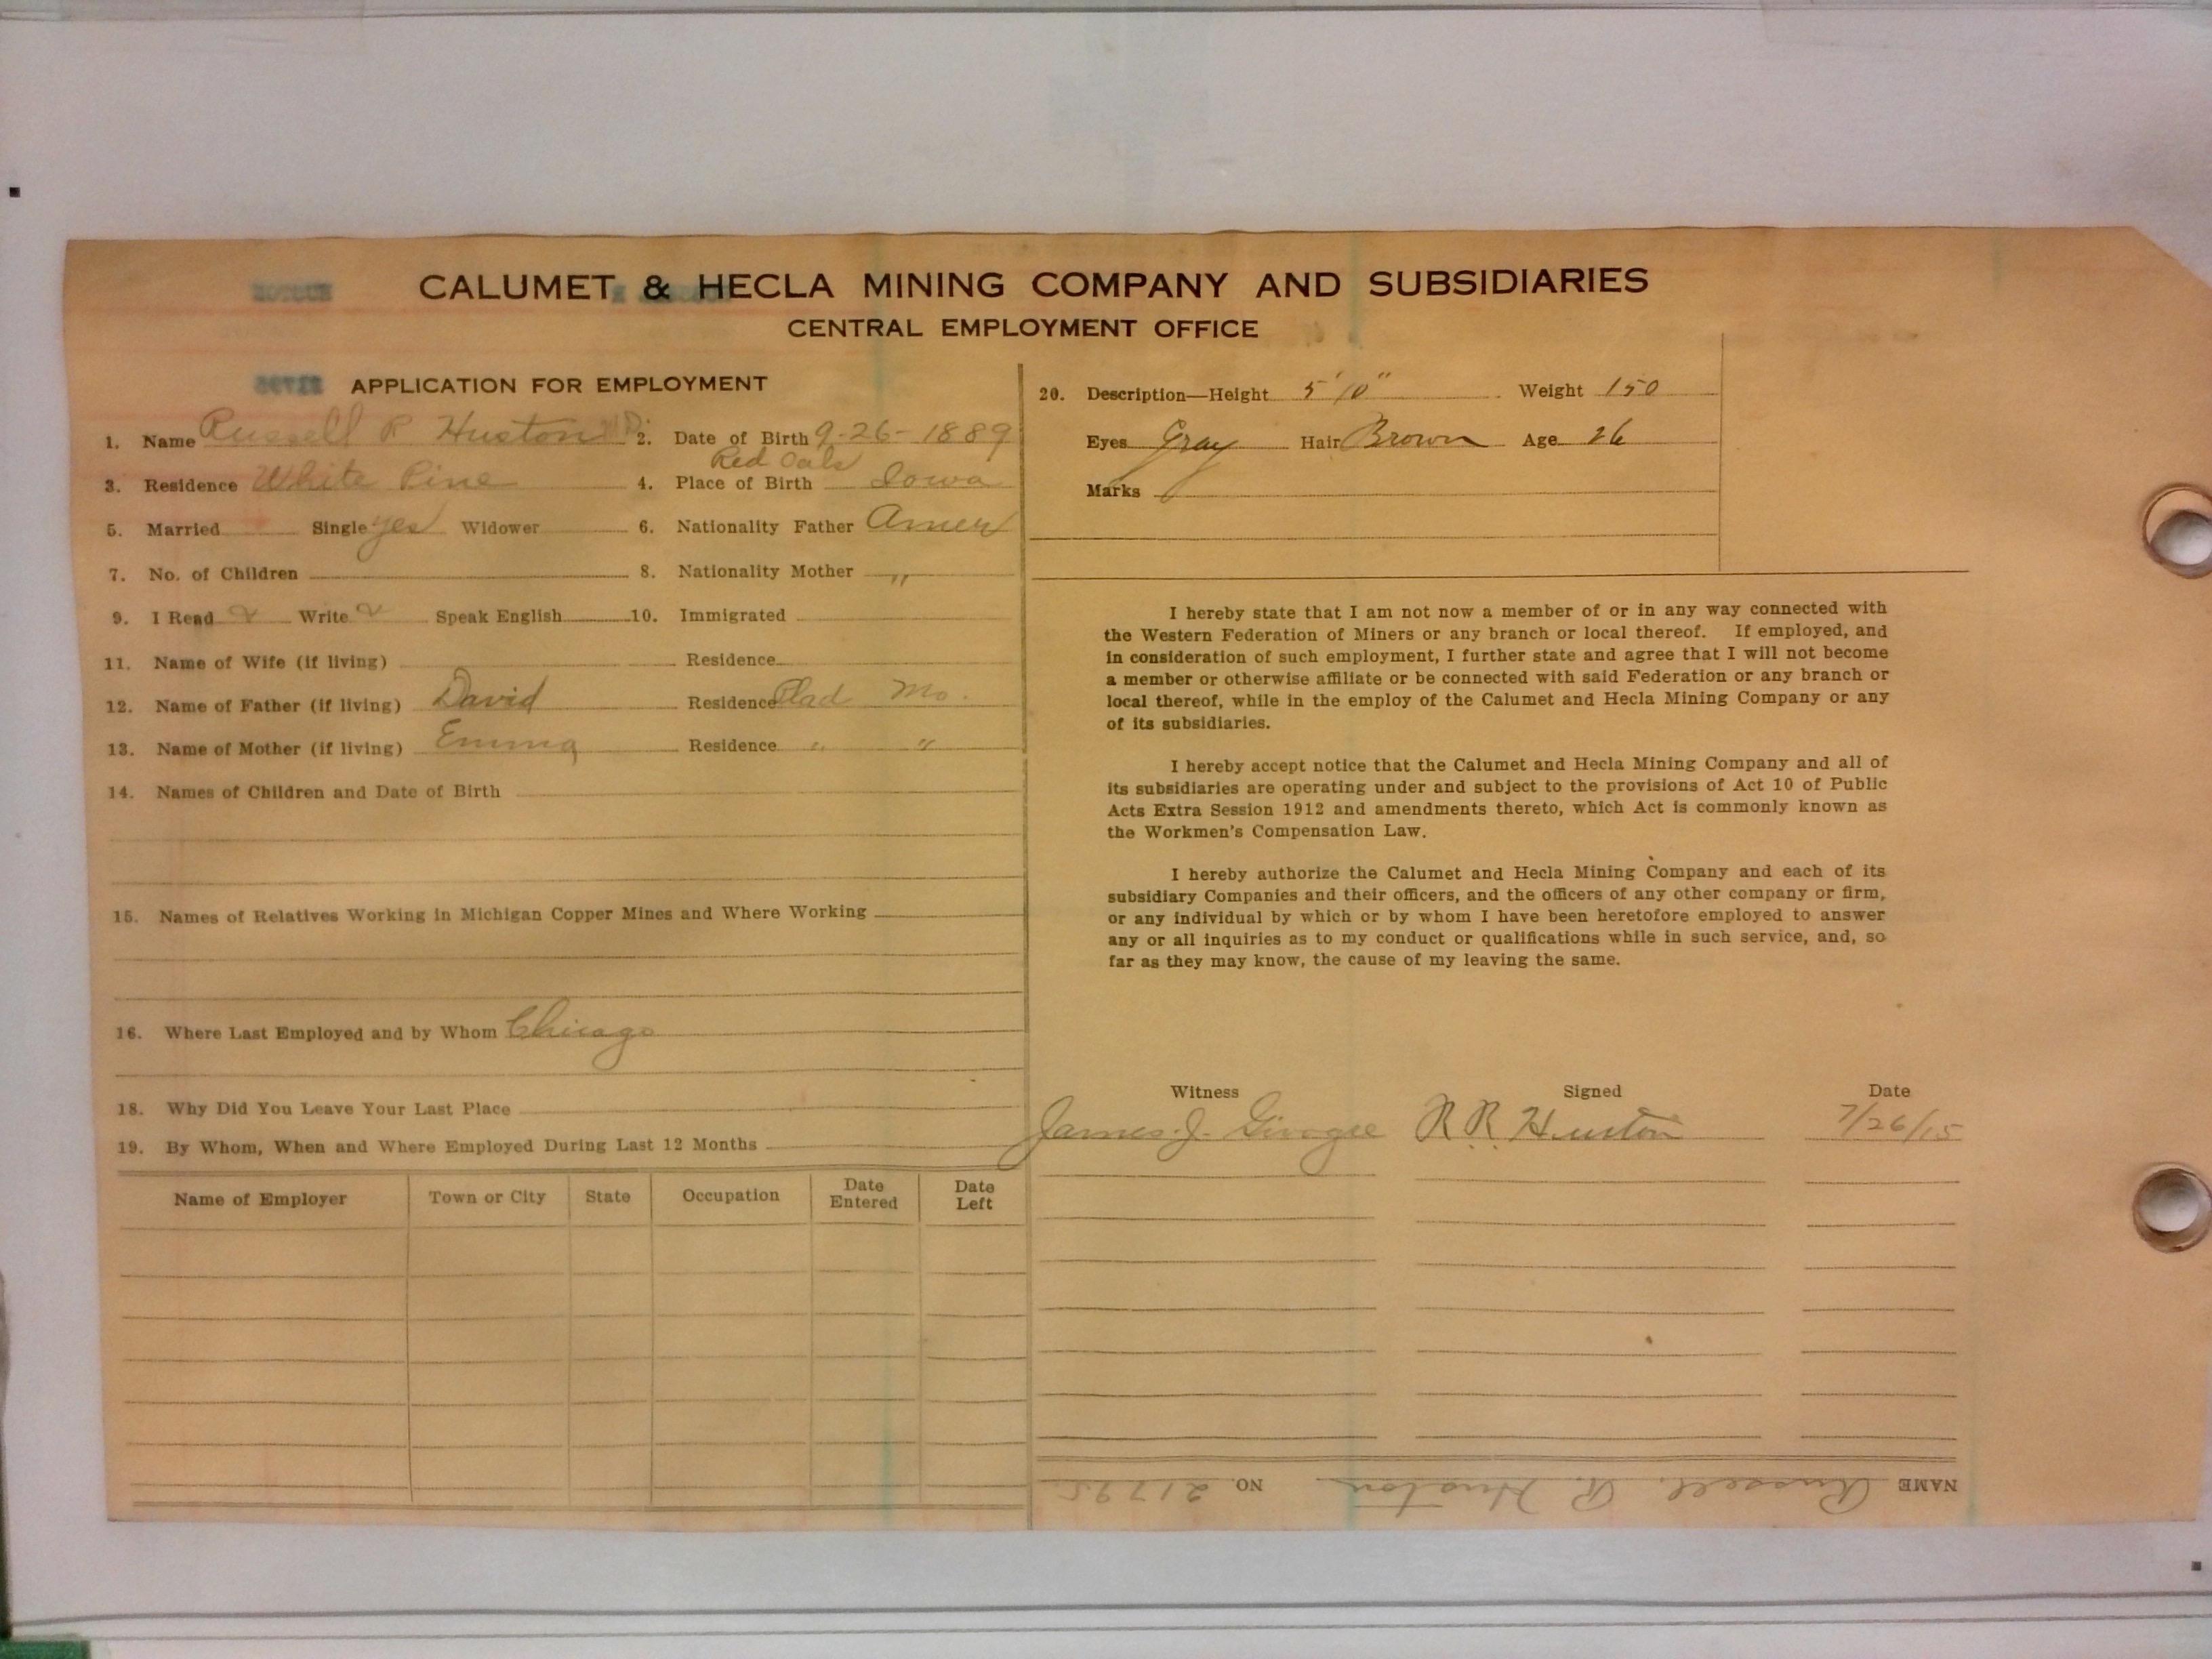 CALUMET & HECLA MINING COMPANY AND SUBSIDIARIES
CENTRAL EMPLOYMENT OFFICE
APPLICATION FOR EMPLOYMENT
1. Name Russell R Huston 2. Date of Birth 9-26-1889
3. Residence White Pine 4. Place of Birth Red Oak Iowa
5. Married Single yes Widower 6. Nationality Father Amer
7. No. of Children 8. Nationality Mother "
9. I Read Write Speak English 10. Immigrated
11. Name of Wife (if living) Residence
12. Name of Father (if living) David Residence Plad Mo.
13. Name of Mother (if living) Emma Residence " "
14. Names of Children and Date of Birth
15. Names of Relatives Working in Michigan Copper Mines and Where Working
16. Where Last Employed and by Whom Chicago
18. Why Did You Leave Your Last Place
19. By Whom, When and Where Employed During Last 12 Months
Name of Employer Town or City State Occupation Date Entered Date Left
20. Description—Height 5'10" Weight 150
Eyes Gray Hair Brown Age 26
Marks
I hereby state that I am not now a member of or in any way connected with
the Western Federation of Miners or any branch or local thereof. If employed, and
in consideration of such employment, I further state and agree that I will not become
a member or otherwise affiliate or be connected with said Federation or any branch or
local thereof, while in the employ of the Calumet and Hecla Mining Company or any
of its subsidiaries.
I hereby accept notice that the Calumet and Hecla Mining Company and all of
its subsidiaries are operating under and subject to the provisions of Act 10 of Public
Acts Extra Session 1912 and amendments thereto, which Act is commonly known as
the Workmen's Compensation Law.
I hereby authorize the Calumet and Hecla Mining Company and each of its
subsidiary Companies and their officers, and the officers of any other company or firm,
or any individual by which or by whom I have been heretofore employed to answer
any or all inquiries as to my conduct or qualifications while in such service, and, so
far as they may know, the cause of my leaving the same.
Witness Signed Date
James J. R R Huston 7/26/15
NAME Russell R. Huston NO. 21795